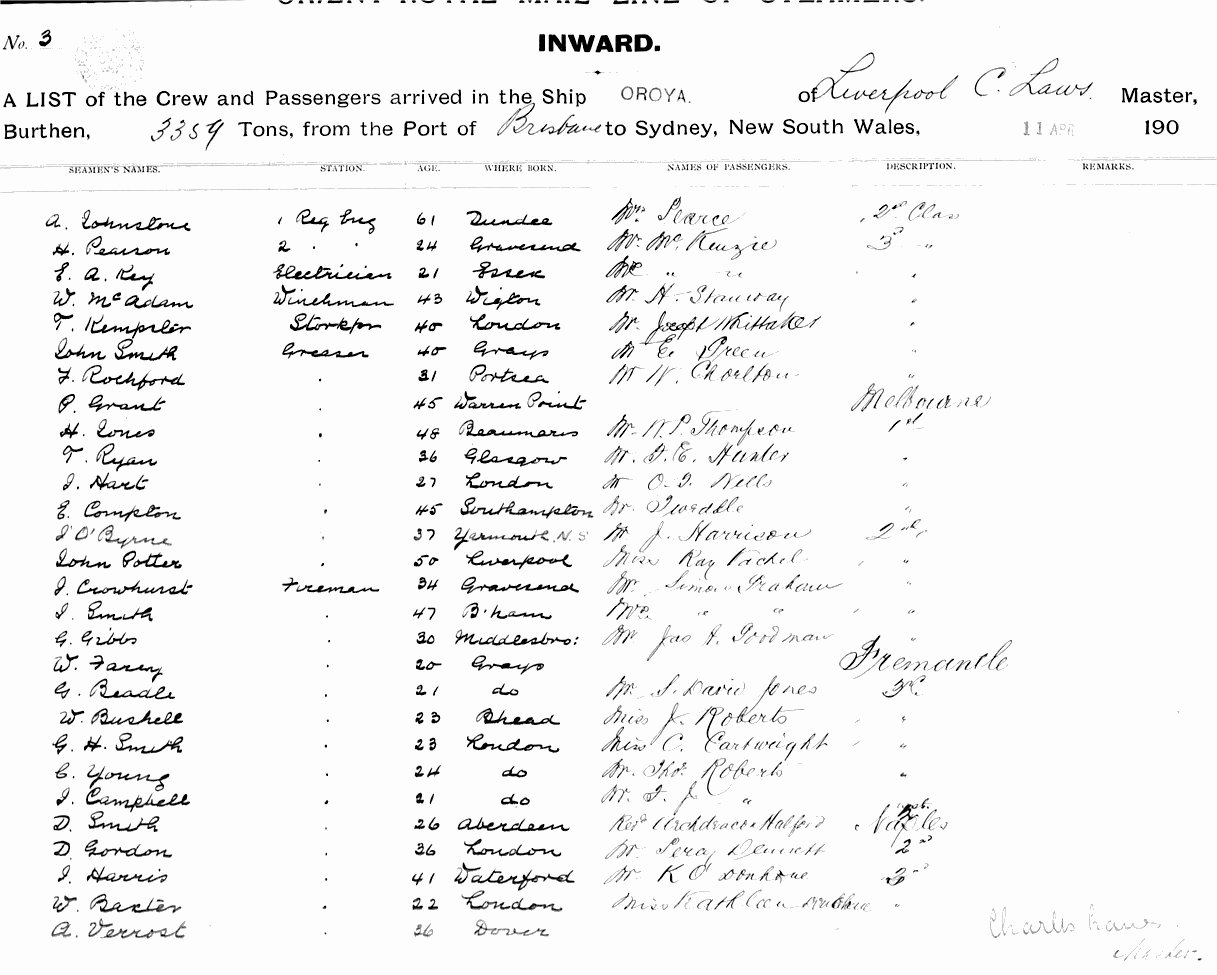 ORIENT-ROYAL MAIL LINE OF STEAMERS.
No. 3
INWARD.
A LIST of the Crew and Passengers arrived in the Ship OROYA. of Liverpool C. Laws. Master,
Burthen, 3359 Tons, from the Port of Brisbane to Sydney, New South Wales, 11 APR 190
SEAMEN'S NAMES. STATION. AGE. WHERE BORN. NAMES OF PASSENGERS. DESCRIPTION. REMARKS.
A. Johnstone 1 Reg Eng 61 Dundee Mrs Pearce 2nd Clas
H. Pearson 2 " " 24 Gravesend Mr. Mc. Kenzie 3 "
E. A. Key Electrician 21 Essex " "
W. McAdam Winchman 43 Wigton Mr. H. Stanway "
T. Kempster 40 London Mr. Joseph Whittaker "
John Smith Greaser 40 Grays Mr E. Green "
F. Rochford . 31 Portsea Mr W. Chorlton "
P. Grant . 45 Warren Point Melbourne
H. Jones . 48 Beaumaris Mr. W. P. Thompson 1st
T. Ryan . 36 Glasgow Mr. F. E. Hunter "
J. Hart . 27 London Mr O. J. Wells "
E. Compton . 45 Southampton Mr. Tweddle "
J O'Byrne . 37 Yarmouth. N.S Mr J. Harrison 2nd
John Potter . 50 Liverpool Miss Ray "
J. Crowhurst Fireman 34 Gravesend Mr. Simon Graham "
J. Smith . 47 B'ham Mrs. " " "
G. Gibbs . 30 Middlesbro: Mr Jas A. Goodman "
W. Farey . 20 Grays Fremantle
G. Beadle . 21 do Mr. S. David Jones 3rd
W. Bushell . 23 Bhead Miss J. Roberts "
G. H. Smith . 23 London Miss C. Cartwright "
C. Young . 24 do Mr. Thos. Roberts "
J. Campbell . 21 do Mr. T. J. "
D. Smith . 26 Aberdeen Revd Archdeacon Halford Naples
D. Gordon . 36 London Mr. Percy Bennett 2nd
J. Harris . 41 Waterford Mr. K O'Donohue 3rd
W. Baxter . 22 London Miss Kathleen "
A. Verrost . 36 Dover
Charles Laws.
Master.